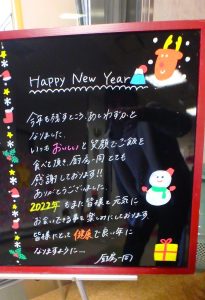 Happy New Year
今年も残すところ、あとわずかと
なりました。
いつもおいしいと笑顔でご飯を
食べて頂き、厨房一同とても
感謝しております!!
ありがとうございました。
2022年もまた皆様と元気に
お会いできる事を楽しみにしております
皆様にとって健康で良い年に
なりますように…
厨房一同